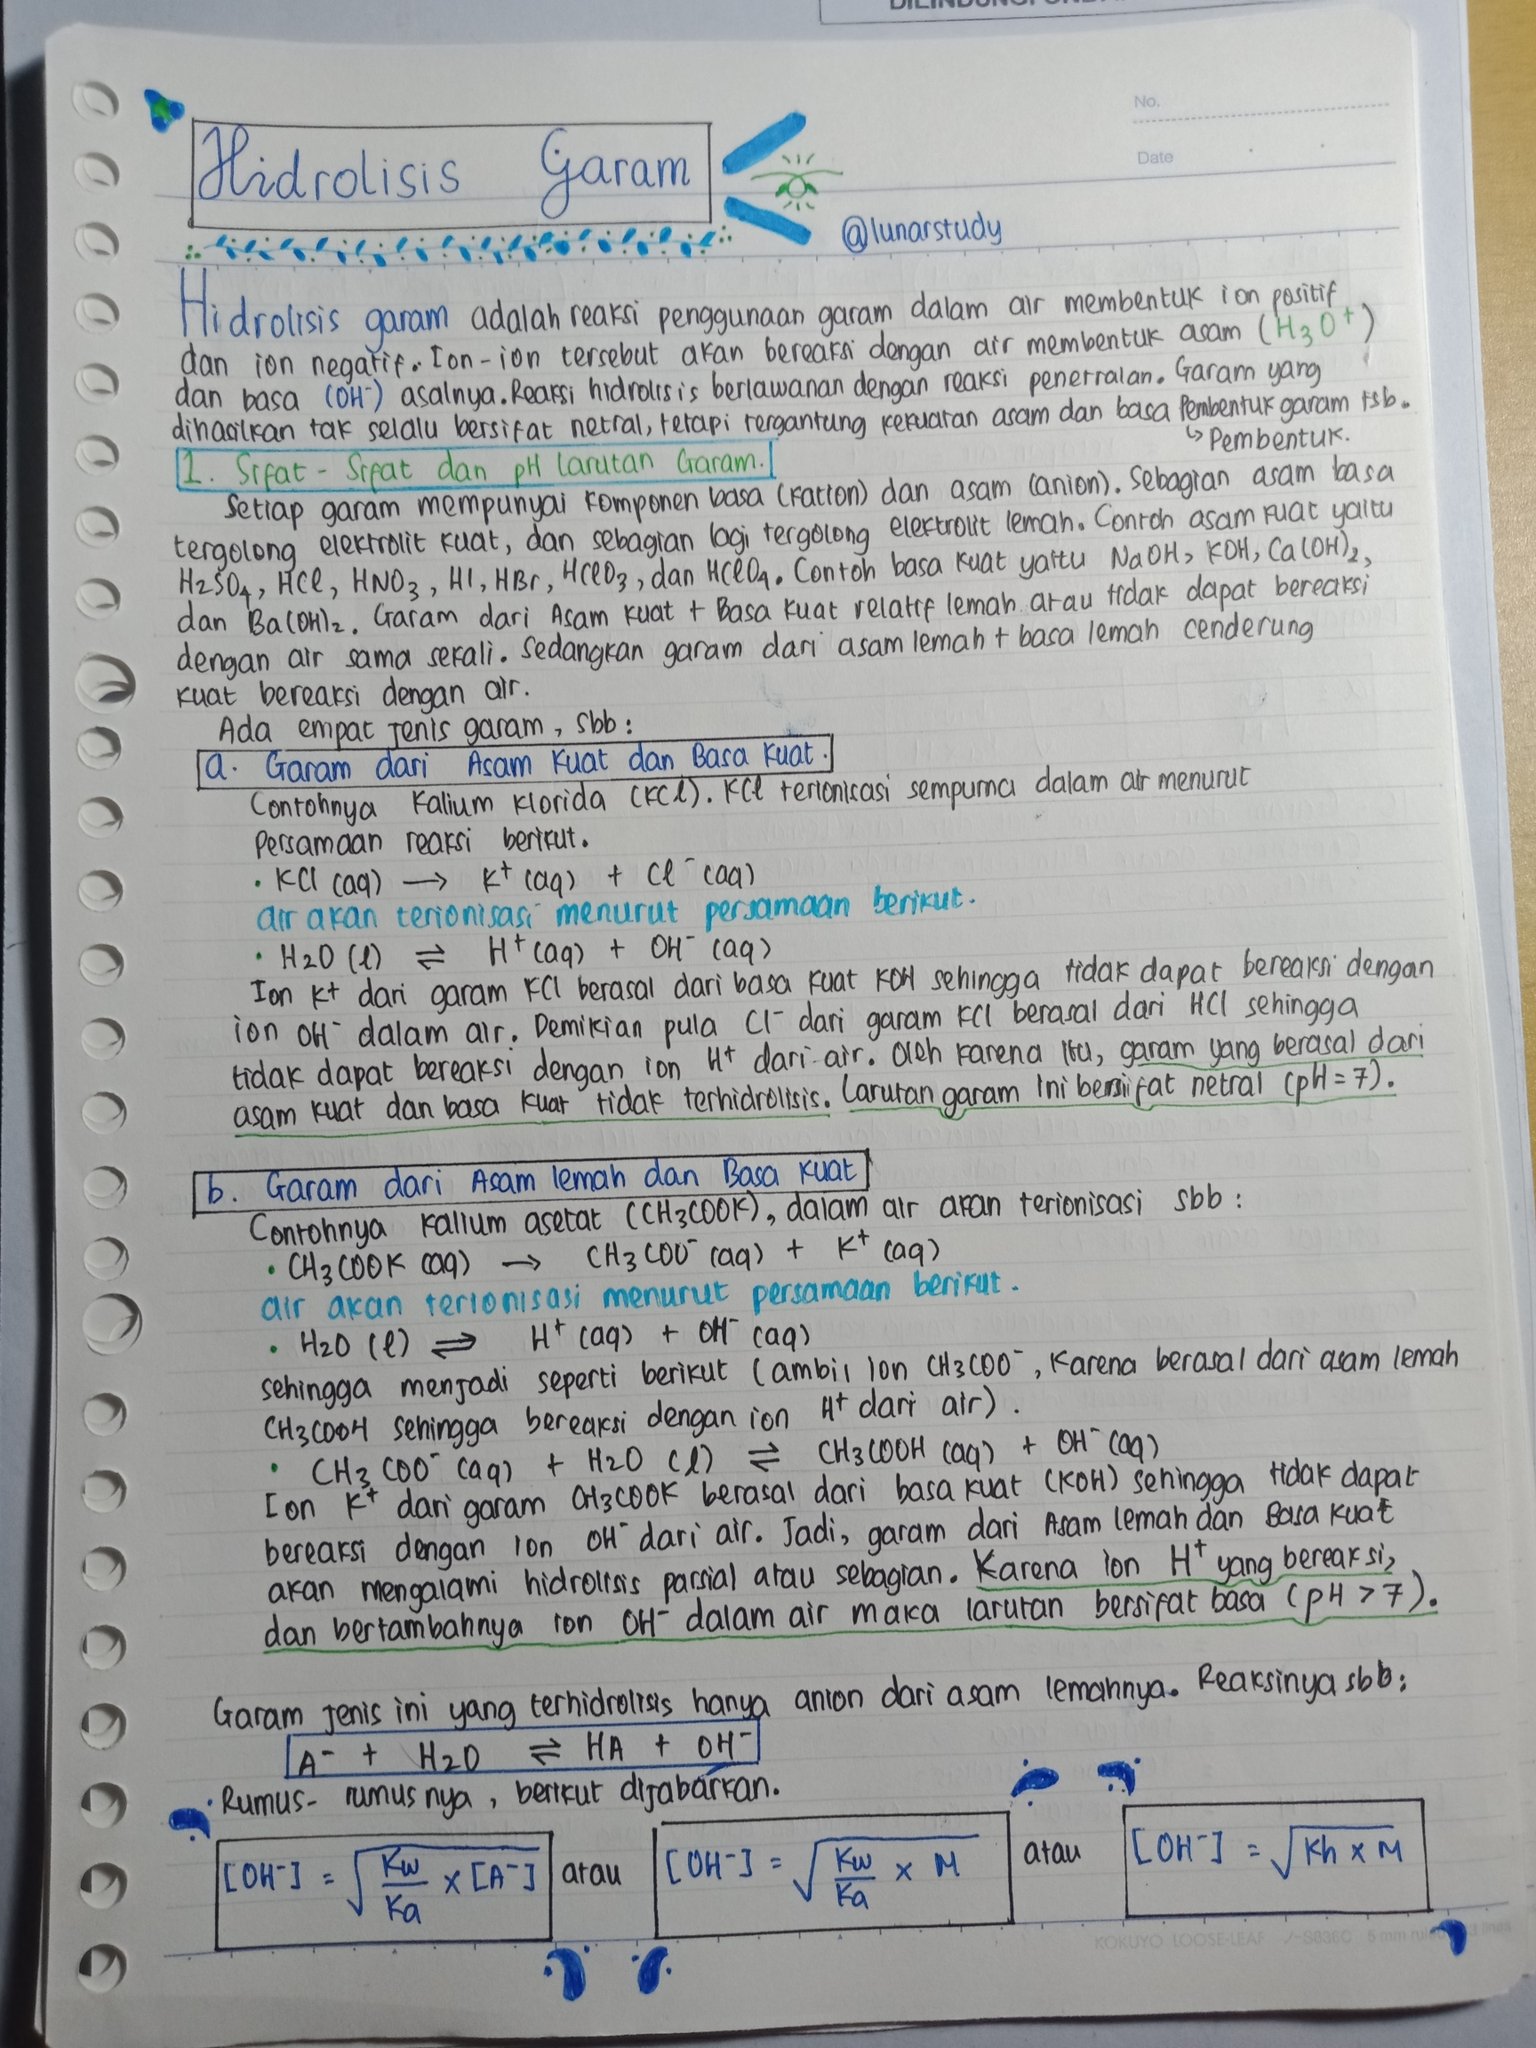 No.
Date
Hidrolisis Garam
@lunarstudy
Hidrolisis garam adalah reaksi penggunaan garam dalam air membentuk ion positif
dan ion negatif. Ion-ion tersebut akan bereaksi dengan air membentuk asam (H3O+)
dan basa (OH-) asalnya. Reaksi hidrolisis berlawanan dengan reaksi penetralan. Garam yang
dihasilkan tak selalu bersifat netral, tetapi tergantung kekuatan asam dan basa Pembentuk garam tsb.
↳ Pembentuk.
1. Sifat-Sifat dan pH larutan Garam.
Setiap garam mempunyai komponen basa (kation) dan asam (anion). Sebagian asam basa
tergolong elektrolit kuat, dan sebagian lagi tergolong elektrolit lemah. Contoh asam kuat yaitu
H2SO4, HCl, HNO3, HI, HBr, HClO3, dan HClO4. Contoh basa kuat yaitu NaOH, KOH, Ca(OH)2,
dan Ba(OH)2. Garam dari Asam kuat + Basa kuat relatif lemah atau tidak dapat bereaksi
dengan air sama sekali. Sedangkan garam dari asam lemah + basa lemah cenderung
kuat bereaksi dengan air.
Ada empat jenis garam, sbb:
a. Garam dari Asam Kuat dan Basa Kuat.
Contohnya Kalium Klorida (KCl). KCl terionisasi sempurna dalam air menurut
Persamaan reaksi berikut.
• KCl (aq) → K+ (aq) + Cl- (aq)
air akan terionisasi menurut persamaan berikut.
• H2O (l) ⇌ H+ (aq) + OH- (aq)
Ion K+ dari garam KCl berasal dari basa kuat KOH sehingga tidak dapat bereaksi dengan
ion OH- dalam air. Demikian pula Cl- dari garam KCl berasal dari HCl sehingga
tidak dapat bereaksi dengan ion H+ dari air. Oleh karena itu, garam yang berasal dari
asam kuat dan basa kuat tidak terhidrolisis. Larutan garam ini bersifat netral (pH = 7).
b. Garam dari Asam lemah dan Basa Kuat
Contohnya Kalium asetat (CH3COOK), dalam air akan terionisasi sbb:
• CH3COOK (aq) → CH3COO- (aq) + K+ (aq)
air akan terionisasi menurut persamaan berikut.
• H2O (l) ⇌ H+ (aq) + OH- (aq)
sehingga menjadi seperti berikut (ambil ion CH3COO-, karena berasal dari asam lemah
CH3COOH sehingga bereaksi dengan ion H+ dari air).
• CH3COO- (aq) + H2O (l) ⇌ CH3COOH (aq) + OH- (aq)
Ion K+ dari garam CH3COOK berasal dari basa kuat (KOH) sehingga tidak dapat
bereaksi dengan ion OH- dari air. Jadi, garam dari Asam lemah dan Basa kuat
akan mengalami hidrolisis parsial atau sebagian. Karena ion H+ yang bereaksi,
dan bertambahnya ion OH- dalam air maka larutan bersifat basa (pH > 7).
Garam jenis ini yang terhidrolisis hanya anion dari asam lemahnya. Reaksinya sbb:
A- + H2O ⇌ HA + OH-
Rumus-rumusnya, berikut dijabarkan.
[OH-] = √(Kw/Ka × [A-]) atau [OH-] = √(Kw/Ka × M) atau [OH-] = √(Kh × M)
KOKUYO LOOSE-LEAF